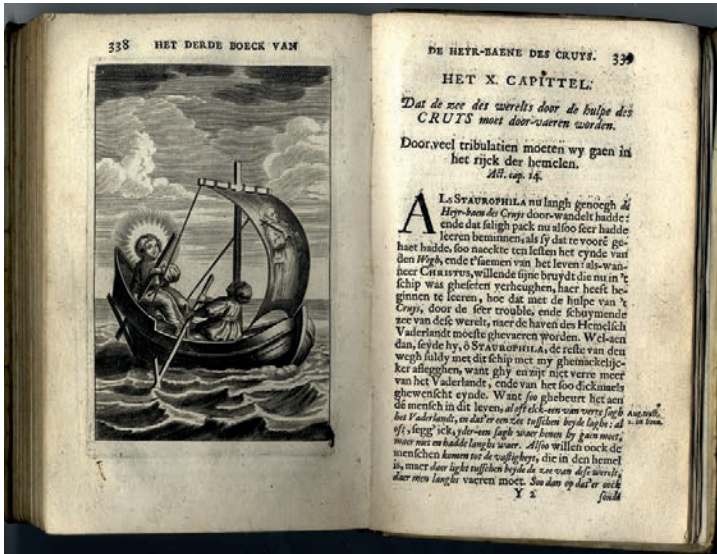 338 HET DERDE BOECK VAN
DE HEYR-BAENE DES CRUYS. 339
HET X. CAPITTEL.
Dat de zee des werelts door de hulpe des
CRUYS moet door-vaeren worden.
Door veel tribulatien moeten wy gaen in
het rijck der hemelen.
Act. cap. 14.
ALs STAUROPHILA nu langh genoegh de
Heyr-baen des Cruys door-wandelt hadde:
ende dat saligh pack nu alsoo seer hadde
leeren beminnen, als sy dat te voorē ge-
haet hadde, soo naeckte ten lesten het eynde van
den Wegh, ende t'saemen van het leven: als-wan-
neer CHRISTUS, willende sijne bruydt die nu in 't
schip was gheseten verheughen, haer heeft be-
ginnen te leeren, hoe dat met de hulpe van 't
Cruys, door de seer trouble, ende schuymende
zee van dese werelt, naer de haven des Hemelsch
Vaderlandt moeste ghevaeren worden. Wel-aen
dan, seyde hy, ô STAUROPHILA, de reste van den
wegh suldy met dit schip met my ghemackelijc-
ker aflegghen, want ghy en zijt niet verre meer
van het Vaderlandt, ende van het soo dickmaels
ghewenscht eynde. Want soo ghebeurt het aen
de mensch in dit leven, al oft elck-een van verre sagh
het Vaderlandt, en dat'er een zee tusschen beyde laghe: al
oft, segg' ick, yder-een sagh waer henen hy gaen moet,
maer niet en hadde langhs waer. Alsoo willen oock de
menschen komen tot de vastigheyt, die in den hemel
is, maer daer light tusschen beyde de zee van dese werelt,
daer men langhs vaeren moet. Soo dan op dat'er oock
Y 2 soude
August.
2. in Ioan.